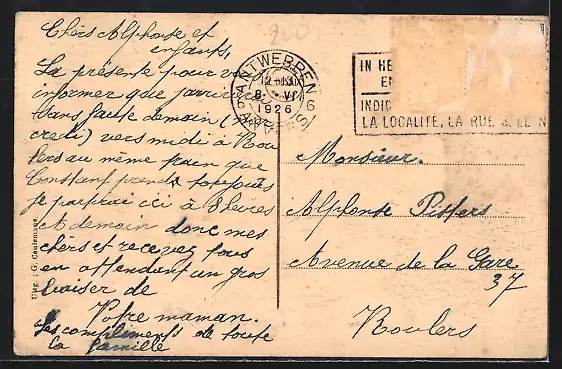 Chers Alphonse et
enfants,
La présente pour vous
informer que j'arriverai
sans faute demain (mer
credi) vers midi à Rou
lers au même train que
Constant prend toujours
je partirai ici à 8 heures
A demain donc mes
chers et recevez tous
en attendant un gros
baiser de
Votre maman.
Les compliments de toute
la famille
Uitg. : G. Ceulemans
900
ANTWERPEN 6
8 VI
1926
ANVERS
IN HE
E
INDIC
LA LOCALITE, LA RUE & LE N
Monsieur.
Alphonse Pitters
Avenue de la Gare
37
Roulers